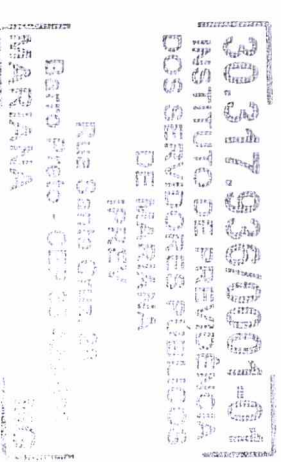 30.317.936/0001-01
INSTITUTO DE PREVIDÊNCIA
DOS SERVIDORES PÚBLICOS
DE MARIANA
Rua Santa Cruz,
Barro Preto - CEP
MARIANA
MG